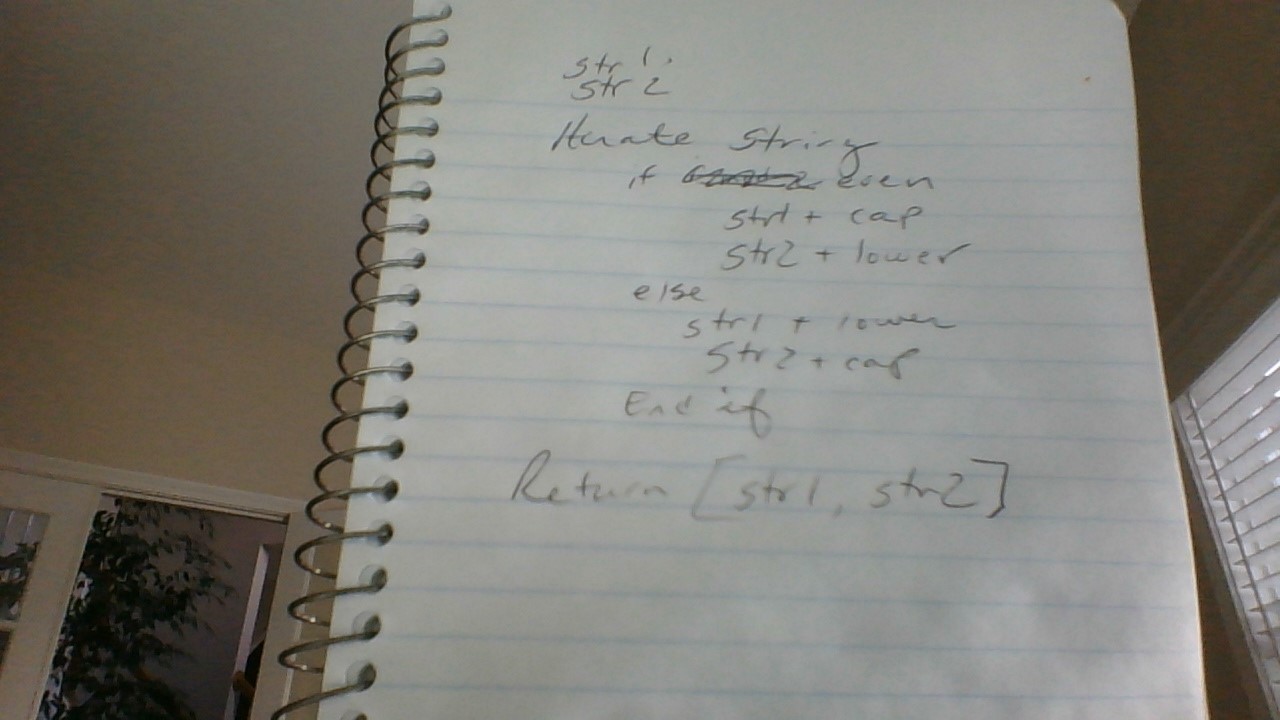 str1.
str2
Iterate string
if even
str1 + cap
str2 + lower
else
str1 + lower
str2 + cap
End if
Return [str1, str2]